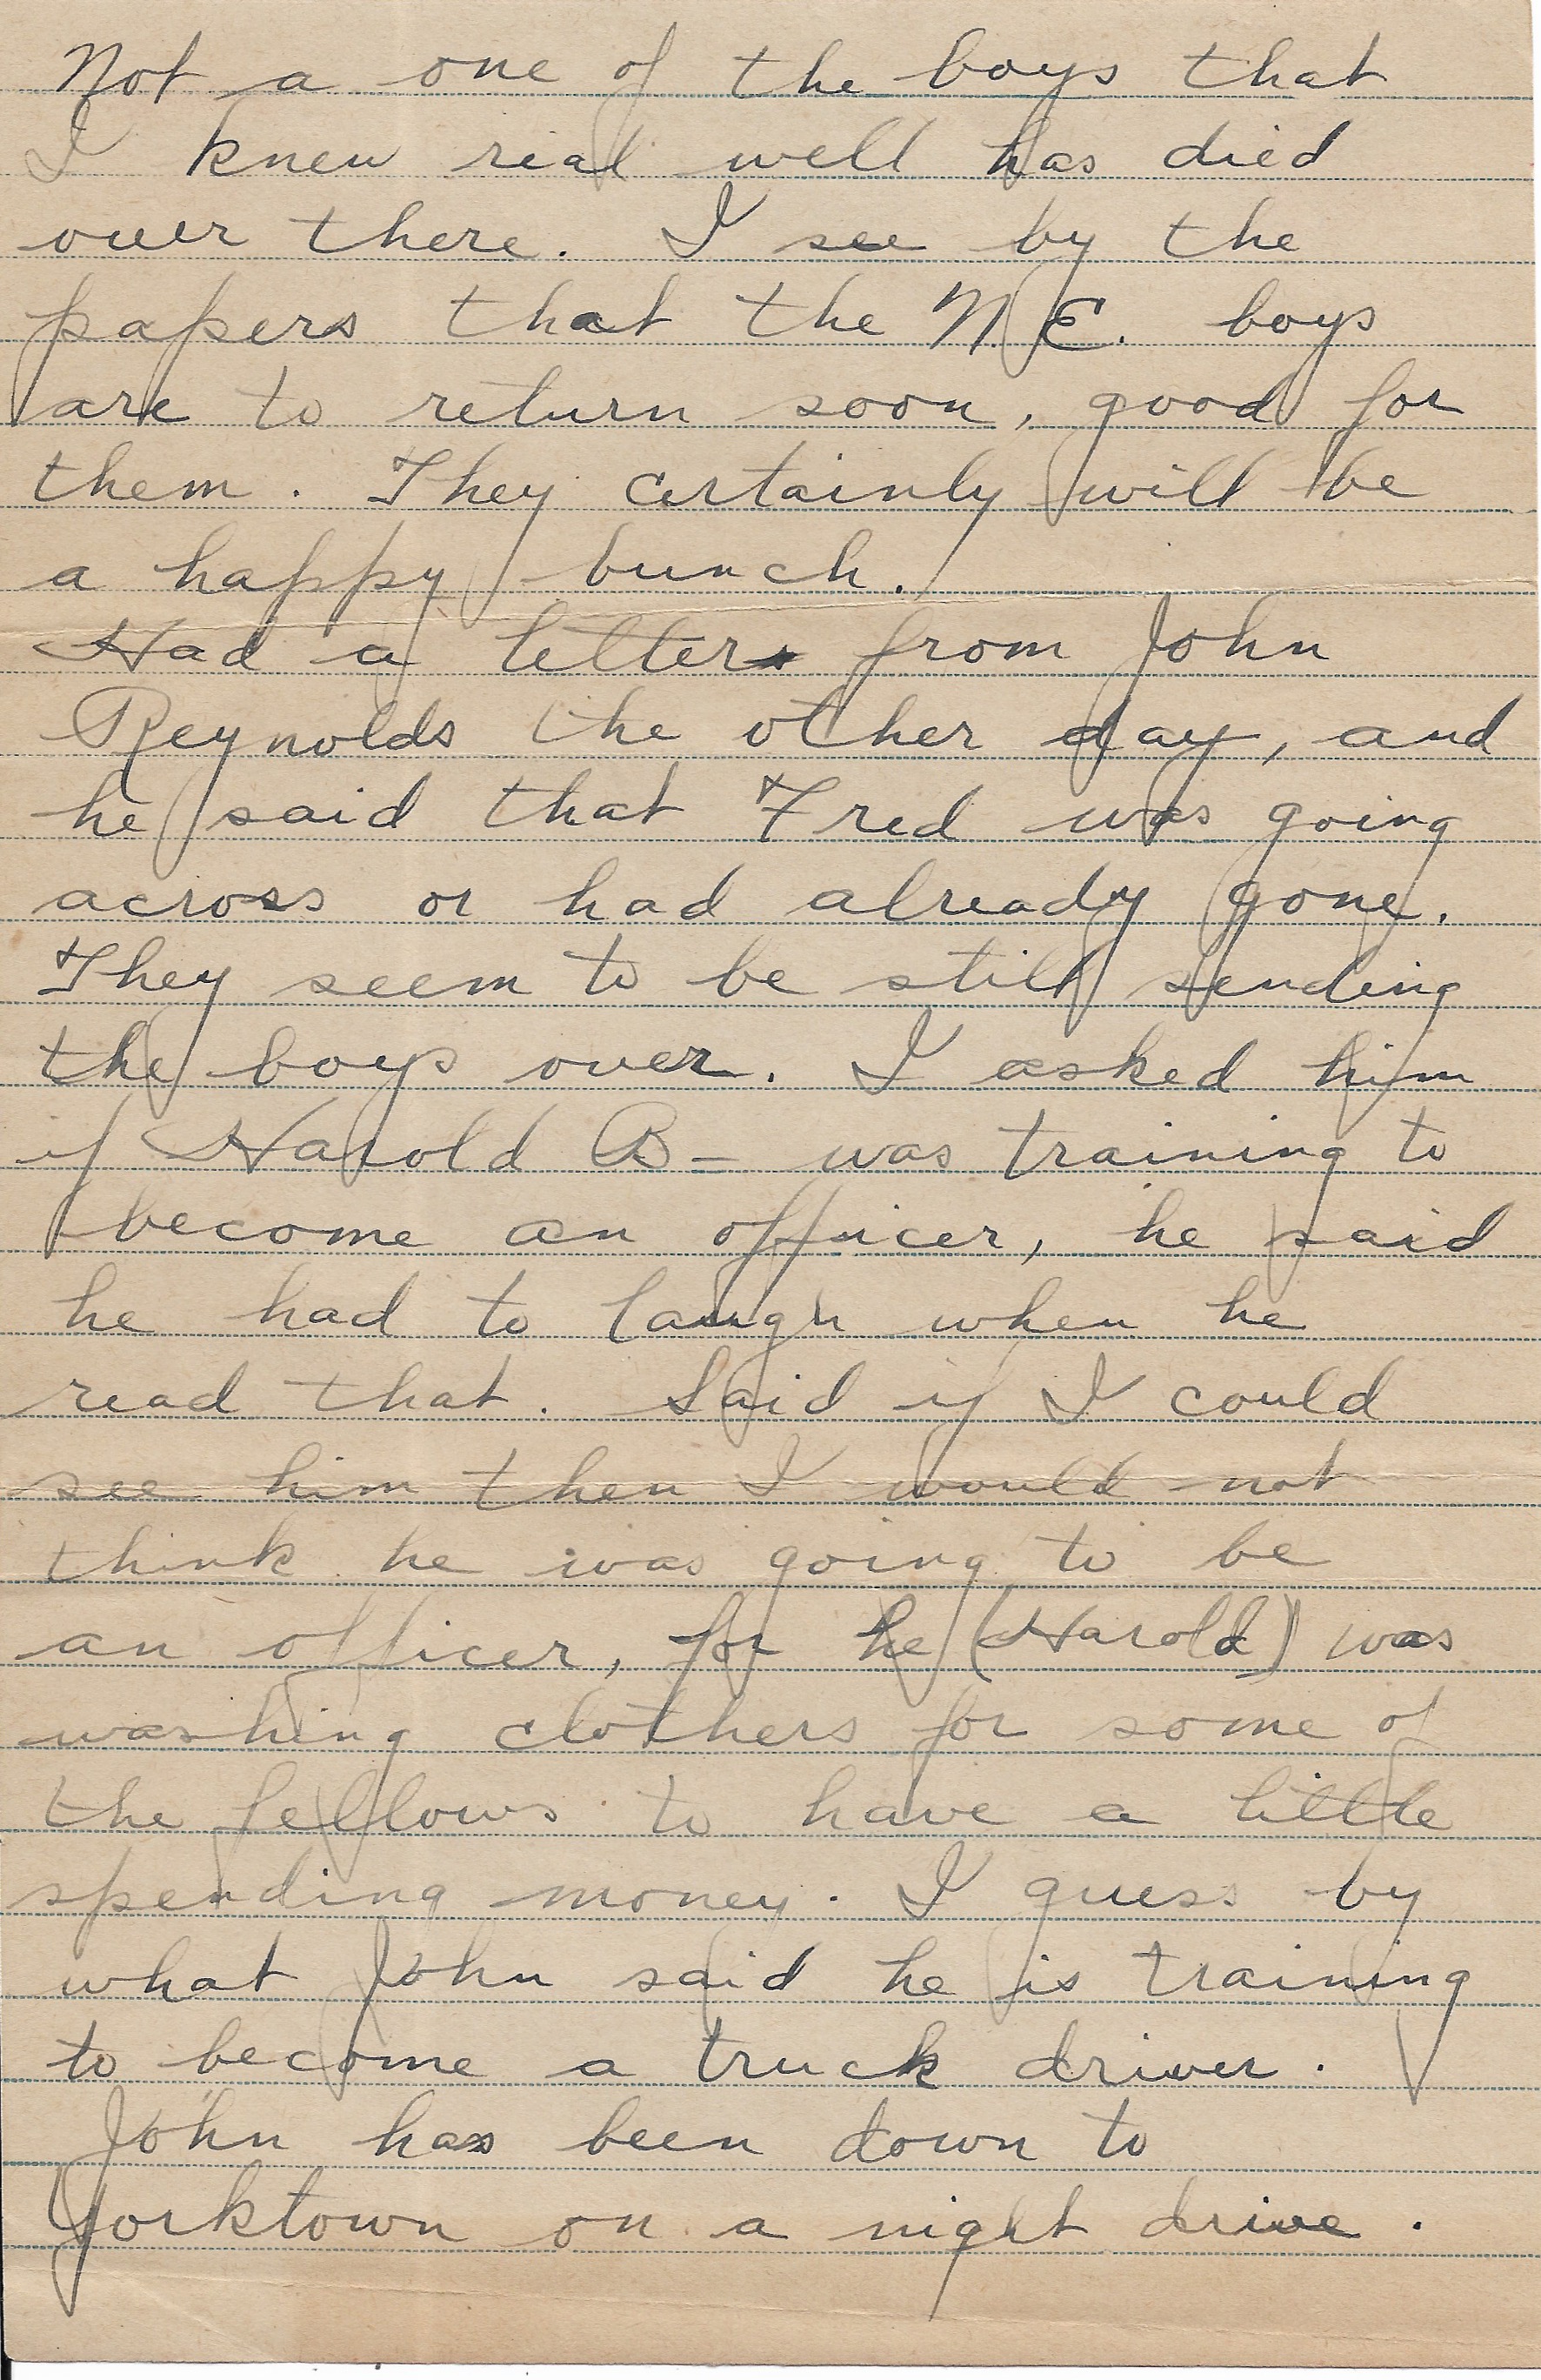 Not a one of the boys that
I knew real well has died
over there. I see by the
papers that the N.E. boys
are to return soon, good for
them. They certainly will be
a happy bunch.
Had a letter from John
Reynolds the other day, and
he said that Fred was going
across or had already gone.
They seem to be still sending
the boys over. I asked him
if Harold B- was training to
become an officer, he said
he had to laugh when he
read that. Said if I could
see him then I would not
think he was going to be
an officer, for he (Harold) was
washing clothers for some of
the fellows to have a little
spending money. I guess by
what John said he is training
to become a truck driver.
John has been down to
Yorktown on a night drive.